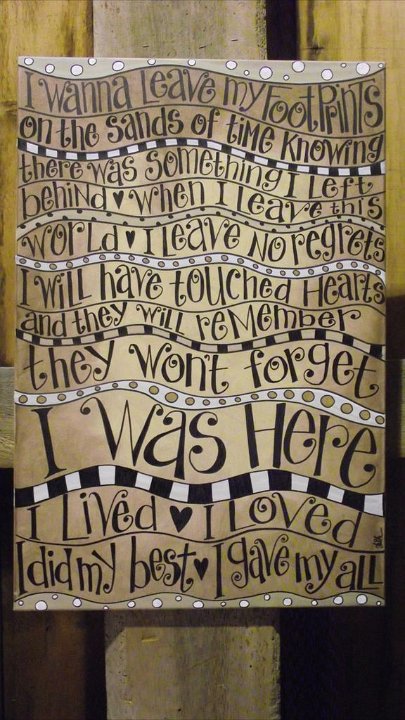 I wanna Leave my FootPrints
on the sands of time knowing
there was something I left
behind ♥ when I leave this
world ♥ I Leave No regrets
I will have touched Hearts
and they will remember
they won't forget
I was Here
I Lived ♥ I Loved
I did my best ♥ I gave my all